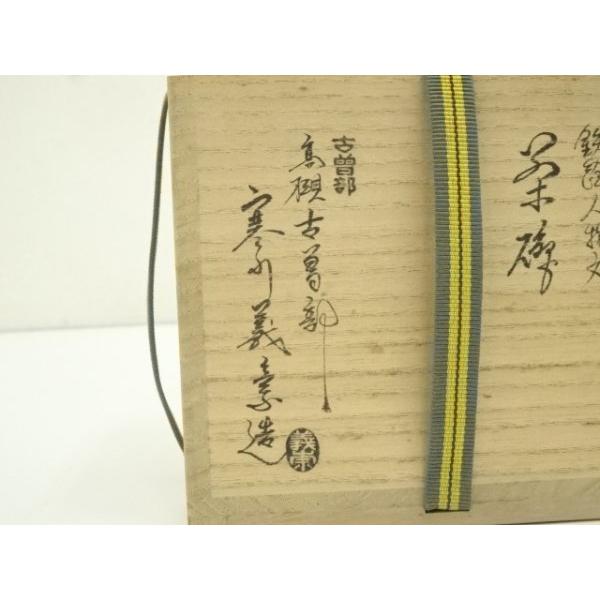 人物文
茶碗
古曽部
高槻古曽部
寒川義崇造
義崇